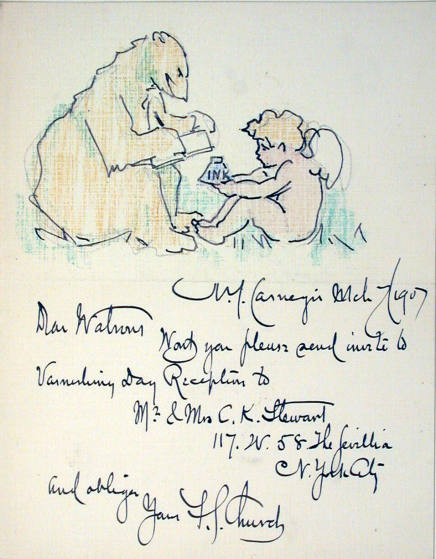 INK
N.Y. Carnegie Mch 7/1907
Dear Watrous
Won't you please send invite to
Varnishing Day Reception to
Mr & Mrs C. K. Stewart
117. W. 58 The Sevillia
N. York City
and oblige
Yours F. S. Church